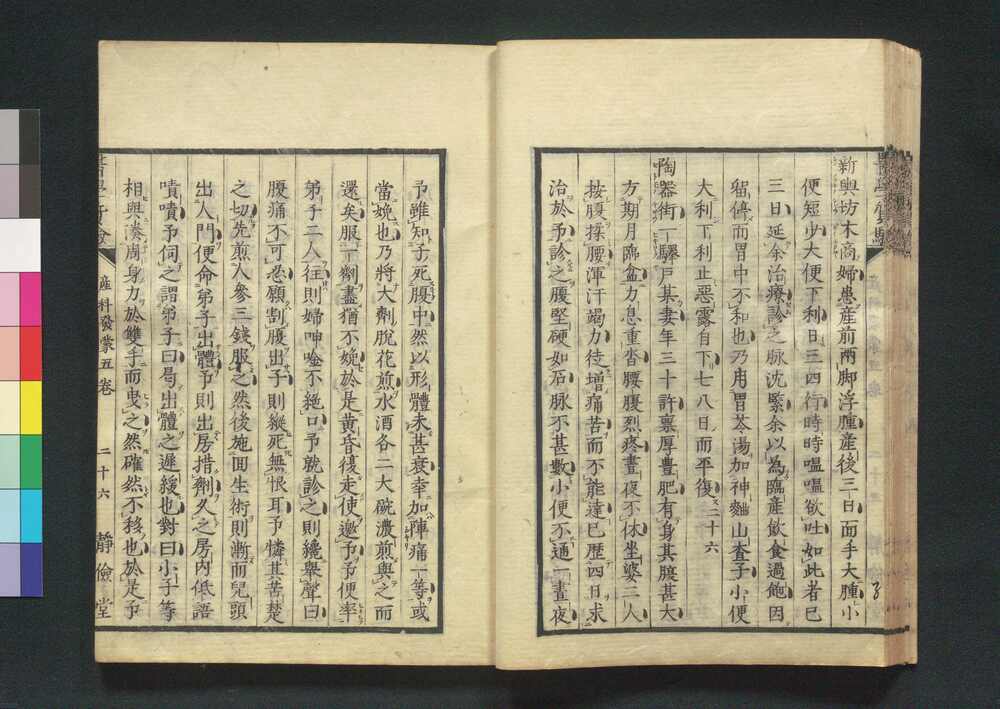 新輿坊木商婦患産前兩脚浮腫産後三日而手大腫小
便短少大便下利日三四行時時嗢嗢欲吐如此者已
三日延余治療診之脉沈緊余以為臨産飲食過飽因
留停而胃中不和也乃用胃苓湯加神麯山査子小便
大利下利止惡露自下七八日而平復
二十六
陶器街一驛戸某妻年三十許稟厚豊肥有身其腹甚大
方期月臨盆力息重沓腰腹烈疼晝夜不休坐婆二人
按腹揉腰渾汗竭力徒增痛苦而不能達已歴四日求
治於予診之腹堅硬如石脉不甚數小便不通一晝夜
予雖知子死腹中然以形體未甚衰幸加陣痛一等或
當娩也乃將大劑脫花煎水酒各二大碗濃煎與之而
還矣服一劑盡猶不娩於是黄昏復走使邀予予便率
弟子二人往則婦呻唫不絶口予就診之則纔舉聲曰
腹痛不可忍願割腹出子則縱死無恨耳予憐其苦楚
之切先煎人參三錢服之然後施回生術則漸而兒頭
出人門便命弟子出體予則出房措劑久之房内低語
嘖嘖予伺之謂弟子曰曷出體之遲緩也對曰小子等
相與湊周身力於雙手而曳之然確然不移也於是予
産科發蒙五卷
二十六
靜儉堂